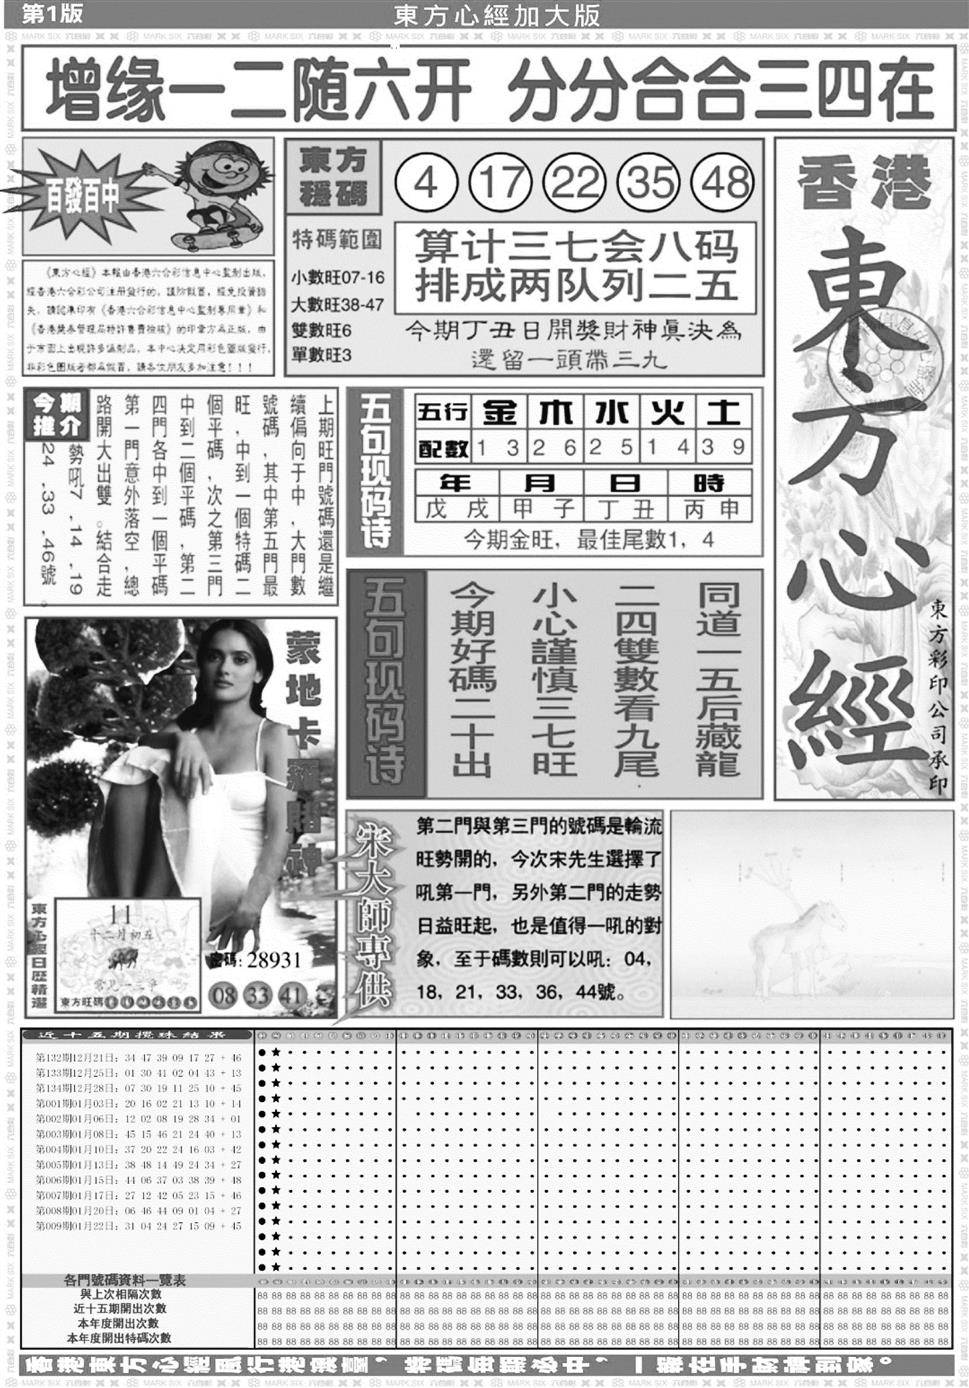 第1版
東方心經加大版
增缘一二随六开 分分合合三四在
百發百中
《東方心經》本報由香港六合彩信息中心監制出版,
經香港六合彩公司注册發行的,
《香港獎券管理局特許書費檢核》的印章方爲正版,由
于市面上出現許多僞制品,本中心決定用彩色圖版發行,
非彩色圖版者都爲假冒,請各位朋友多加注意!!!
東方
穩碼
4 17 22 35 48
特碼範圍
小數旺07-16
大數旺38-47
雙數旺6
單數旺3
算计三七会八码
排成两队列二五
今期丁丑日開獎財神眞決為
還留一頭帶三九
香港
東方心經
東方彩印公司承印
今期
推介
上期旺門號碼還是繼
續偏向于中,大門數
號碼,其中第五門最
旺,中到一個特碼二
個平碼,次之第三門
中到二個平碼,第二
四門各中到一個平碼
第一門意外落空,總
路開大出雙。結合走
勢吼7,14,19
24,33,46號。
五句现码诗
五行 金 木 水 火 土
配數 1 3 2 6 2 5 1 4 3 9
年 月 日 時
戊戌 甲子 丁丑 丙申
今期金旺,最佳尾數1,4
五句现码诗
同道一五后藏龍
二四雙數看九尾
小心謹慎三七旺
今期好碼二十出
蒙地卡羅賭神
東方心經日歷精選
11
十二月初五
東方旺碼
密碼:28931
08 33 41
宋大師專供
第二門與第三門的號碼是輪流
旺勢開的,今次宋先生選擇了
吼第一門,另外第二門的走勢
日益旺起,也是值得一吼的對
象,至于碼數則可以吼:04,
18,21,33,36,44號。
近十五期攪珠結果
第132期12月21日: 34 47 39 09 17 27 + 46
第133期12月25日: 01 30 41 02 04 43 + 13
第134期12月28日: 07 30 19 11 25 10 + 45
第001期01月03日: 20 16 02 21 13 10 + 14
第002期01月06日: 12 02 08 19 28 34 + 01
第003期01月08日: 45 15 46 21 24 40 + 13
第004期01月10日: 37 20 22 24 16 03 + 42
第005期01月13日: 38 48 14 49 24 34 + 27
第006期01月15日: 44 06 37 03 38 39 + 48
第007期01月17日: 27 12 42 05 23 15 + 46
第008期01月20日: 06 46 44 09 01 04 + 27
第009期01月22日: 31 04 24 27 15 09 + 45
各門號碼資料一覽表
與上次相隔次數
近十五期開出次數
本年度開出次數
本年度開出特碼次數
香港東方心經風行港澳臺,特碼每期必中,一版在手財神到家。